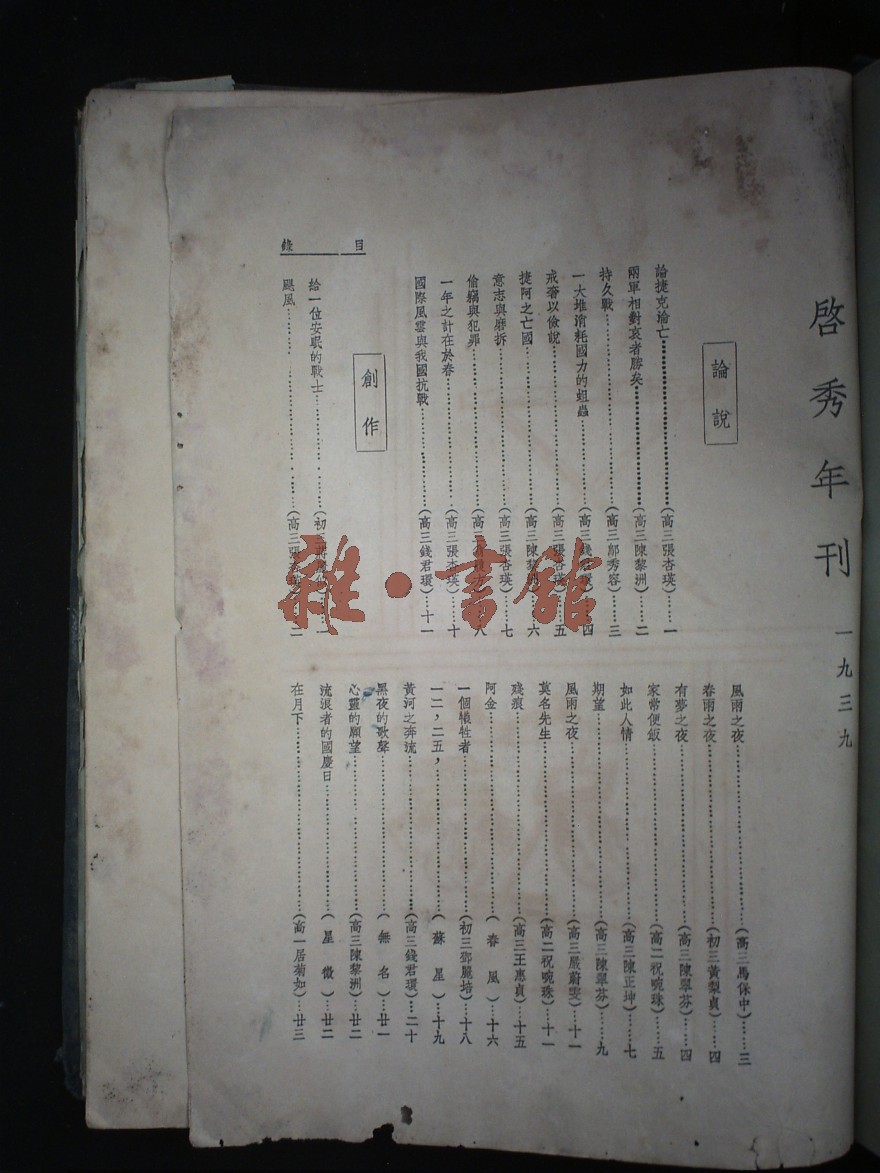 啓秀年刊 一九三九
目錄
論說
論捷克淪亡……(高三張杏瑛)…一
兩軍相對哀者勝矣……(高三陳黎洲)…二
持久戰……(高三鄔秀容)…三
一大堆消耗國力的蛆蟲……(高三錢君環)…四
戒奢以儉說……(高三張杏瑛)…五
捷阿之亡國……(高三陳黎洲)…六
意志與磨折……(高三張杏瑛)…七
偷竊與犯罪……(高三 八
一年之計在於春……(高三張杏瑛)…十
國際風雲與我國抗戰……(高三錢君環)…十一
創作
給一位安眠的戰士……(初 一
颶風……(高三張杏瑛)…二
風雨之夜……(高三馬保中)…三
春雨之夜……(初三黃梨貞)…四
有夢之夜……(高三陳翠芬)…四
家常便飯……(高二祝婉珠)…五
如此人情……(高三陳正坤)…七
期望……(高三陳翠芬)…九
風雨之夜……(高三嚴蔚雯)…十一
莫名先生……(高二祝婉珠)…十一
殘痕……(高三王惠貞)…十五
阿金……(春風)…十六
一個犧牲者……(初三鄧麗培)…十八
一二,二五,……(蘇星)…十九
黃河之奔流……(高三錢君環)…二十
黑夜的歌聲……(無名)…廿一
心靈的願望……(高三陳黎洲)…廿二
流浪者的國慶日……(星微)…廿二
在月下……(高一居菊如)…廿三
雜·書館